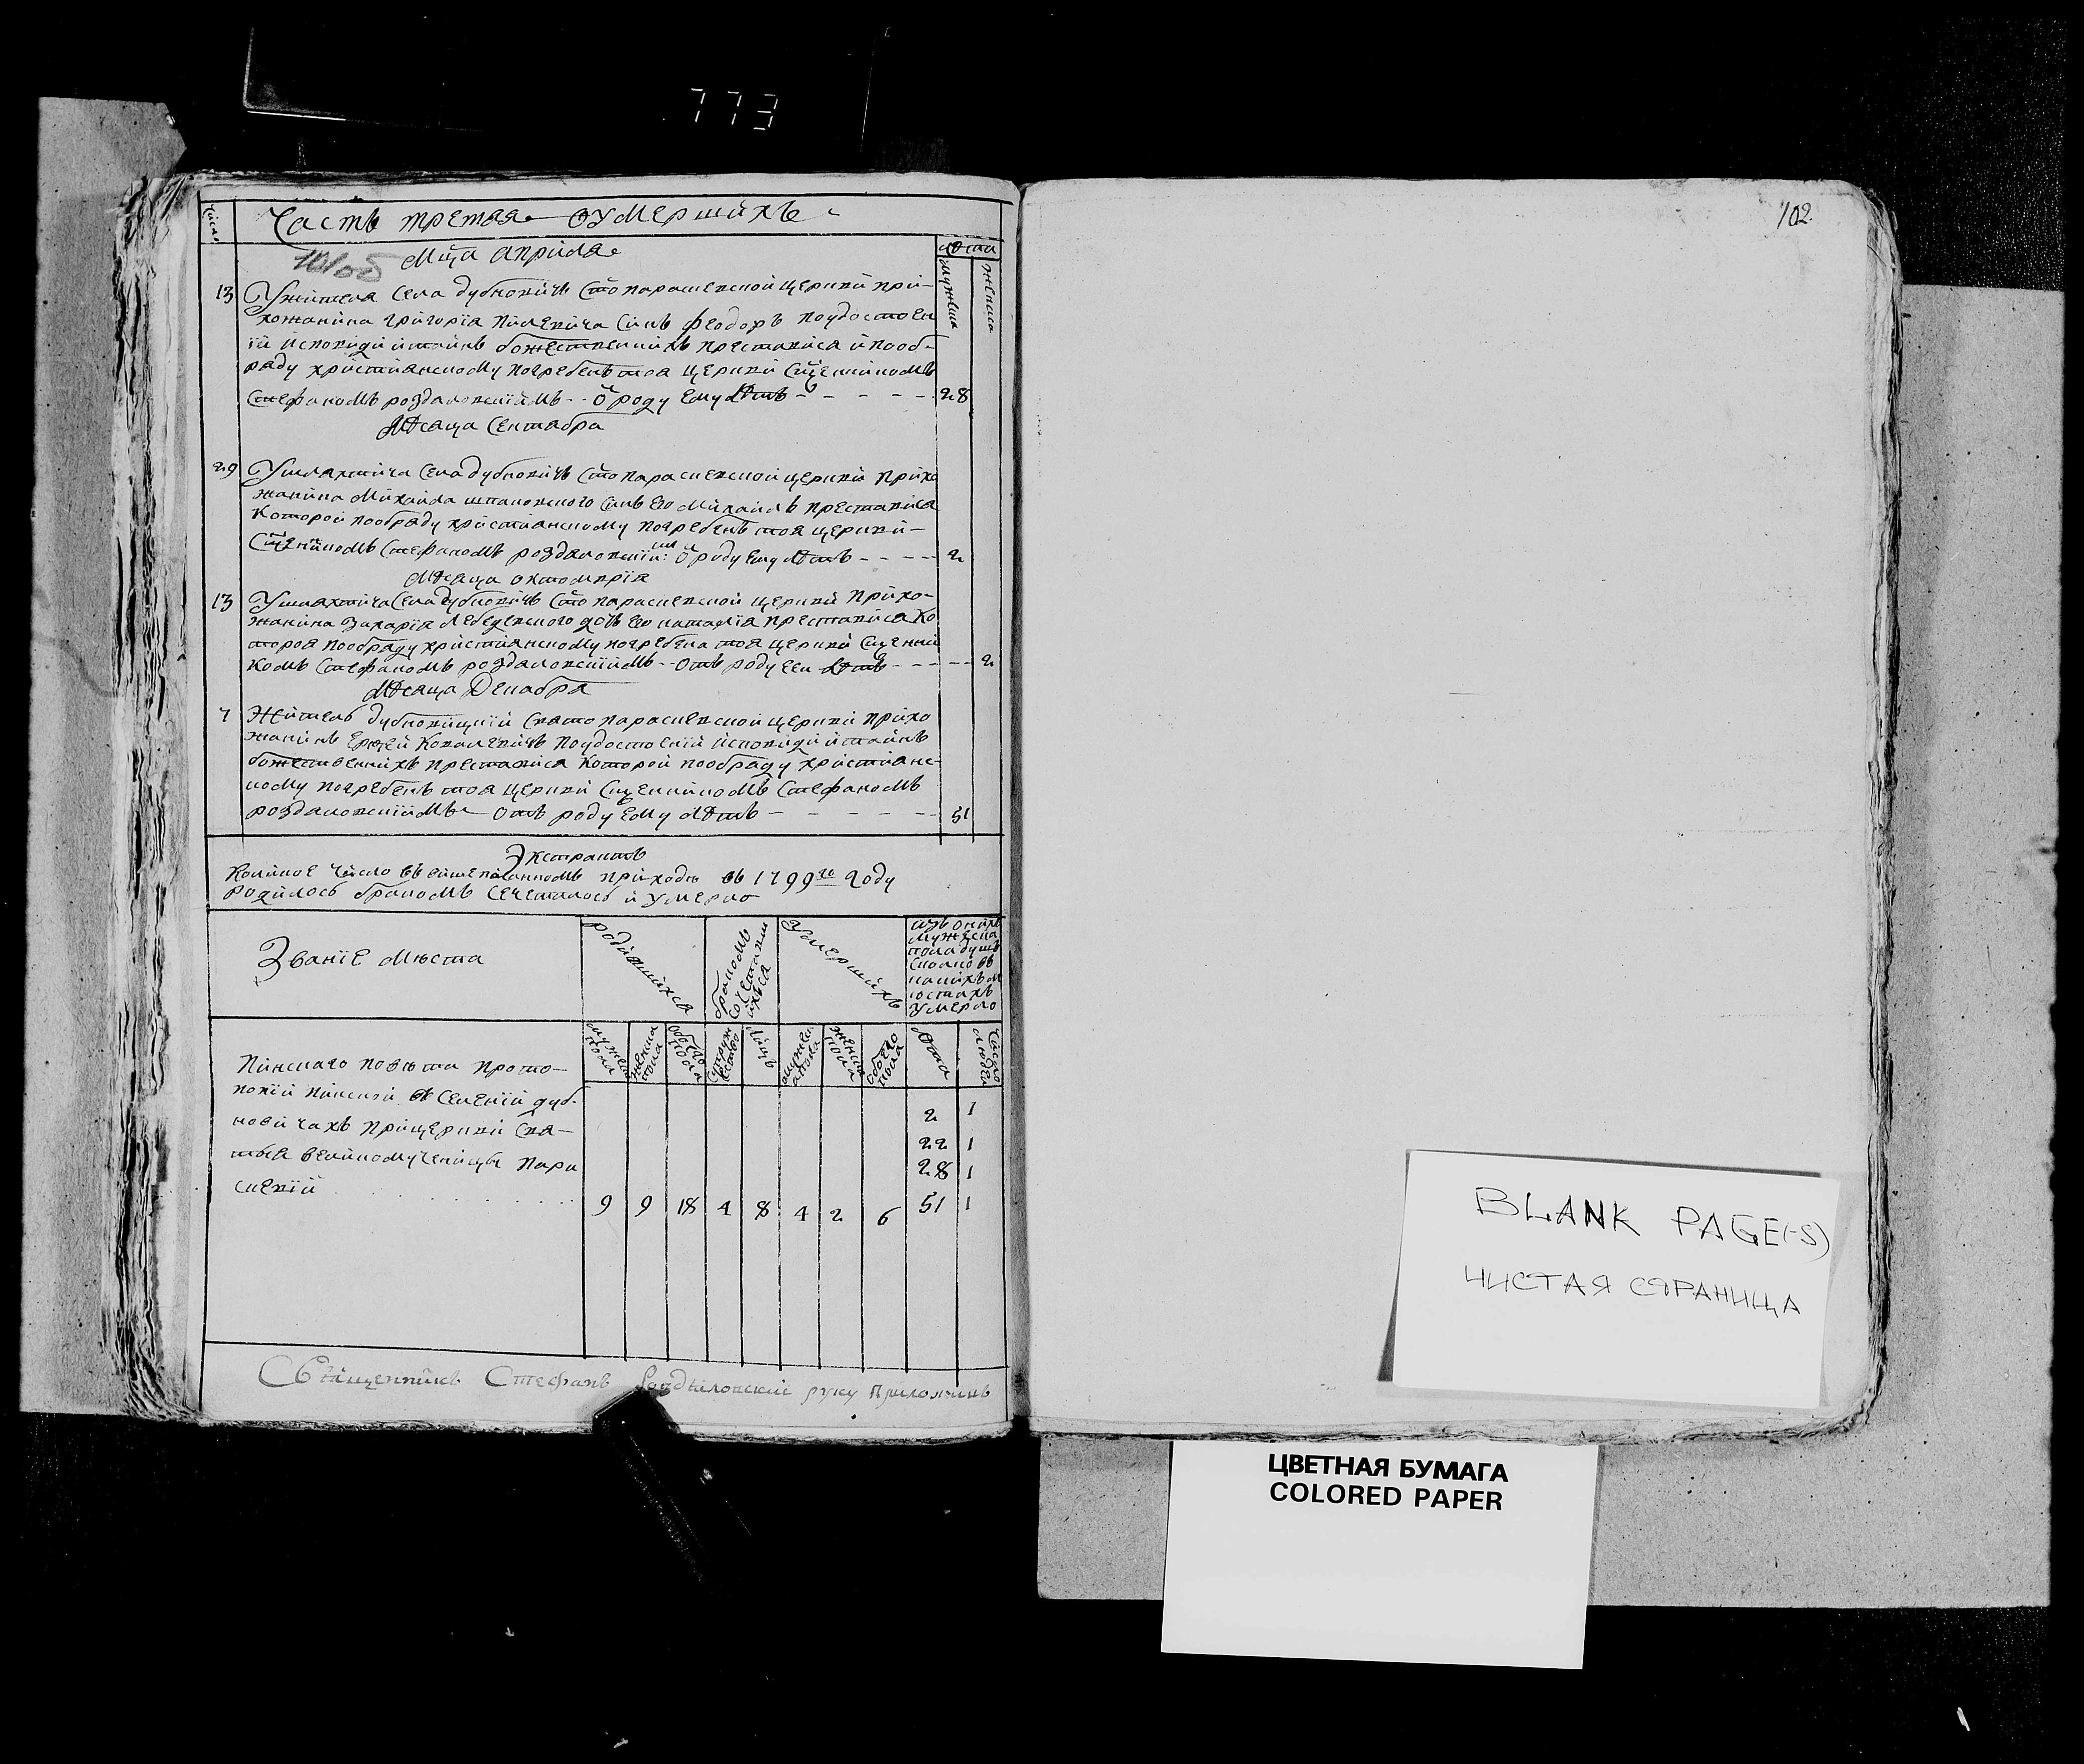 773
102
Число
Часть третая оумершихъ
101об
Мца Априля
Лѣта
мужеска
женска
13 Ужителя села Дубновичъ Сто параскевской церкви при-
хожанина Григорїа Пилевича синъ Феодоръ поудостоен
їи исповиди и таинъ божественнихъ преставися и пооб-
раду христїанскому погребенъ тоя церкви Сщенникомъ
Стефаномъ роздаловскїимъ - - ѿ роду Ему лѣтъ - - - - - 28
Мѣсаца Сентабра
29 Ушляхтича Села Дубновичъ Сто параскевской церкви прихо
жанина Михаила шпаковского синъ Его Михаилъ преставися
Которой пообраду христїанскому погребенъ тоя церкви -
Сщенникомъ Стефаномъ роздаловскїи: ѿ роду Ему лѣтъ - - - - 2
Мѣсаца октомврїа
13 Ушляхтича Села Дубновичъ Сто параскевской церкви прихо-
жанина Захарїа Лебедевского дочь Его наталїа преставися Ко
торая пообраду христїанскому погребена тоя церкви Сщенни
комъ Стефаномъ роздаловскїимъ - - отъ роду Еи лѣтъ - - - - - 2
Мѣсаца Декабра
7 Житель дубновицкїй Свято параскевской церкви прихо
жанинъ Ковалевичъ поудостоенїи исповиди и таинъ
божественнихъ преставися которой пообраду христїанс-
кому погребенъ тоя церкви Сщенникомъ Стефаномъ
роздаловскїимъ - отъ роду Ему лѣтъ - - - - - 51
Экстрактъ
Коликое число въ вишеписанномъ приходѣ въ 1799го году
родилось бракомъ сечеталось и умерло
Званїе мѣста
родившихся
бракомъ сочетавшихъся
Умершихъ
изъ онихъ
мужеска
пола душъ
сколко въ
какихъ л
ѣтахъ
умерло
мужеска пола
женска пола
обоего пола
супружество
лицъ
мужеска пола
женска пола
обоего пола
лѣта
число людей
Пинскаго повѣта прото-
попїи пинской въ селенїи дуб-
новичахъ прицеркви Свя-
тыя великомученицы пара
скевїи
9 9 18 4 8 4 2 6
2 1
22 1
28 1
51 1
Священникъ Стефанъ Роздяловский руку приложилъ
BLANK PAGE(-S)
ЧИСТАЯ СТРАНИЦА
ЦВЕТНАЯ БУМАГА
COLORED PAPER